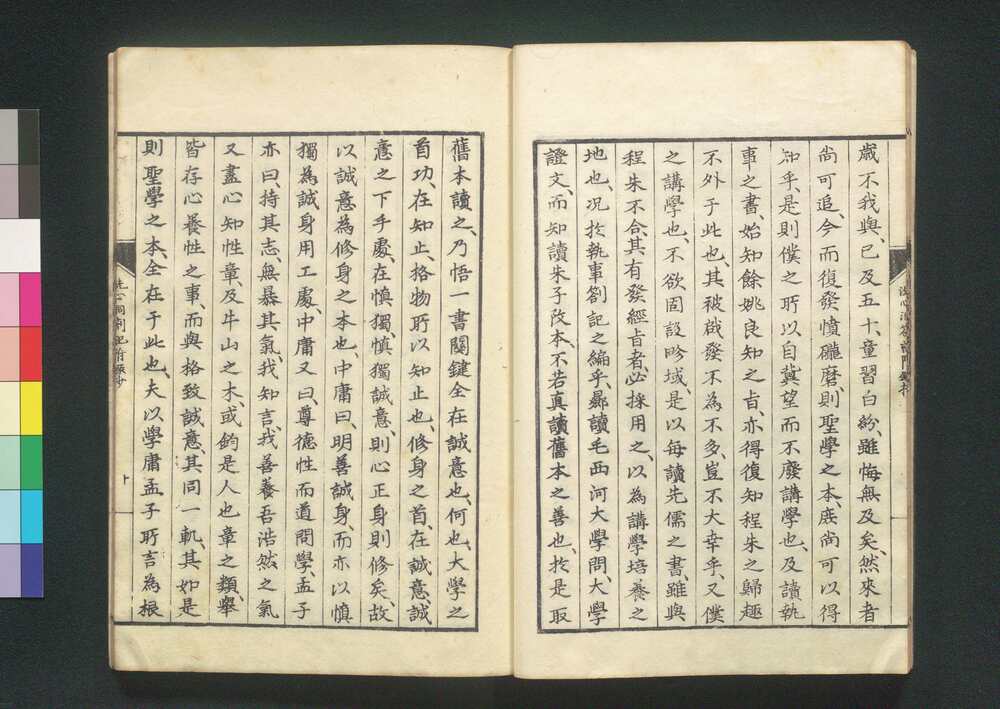 歳不我與、已及五十、童習白紛、雖悔無及矣、然來者
尚可追、今而復發憤礲磨、則聖學之本、庶尚可以得
知乎、是則僕之所以自冀望而不廢講學也、及讀執
事之書、始知餘姚良知之旨、亦得復知程朱之歸趣
不外于此也、其被啟發不為不多、豈不大幸乎、又僕
之講學也、不欲固設畛域、是以每讀先儒之書、雖與
程朱不合、其有發經旨者、必採用之、以為講學培養之
地也、况於執事劄記之編乎、曩讀毛西河大學問、大學
證文、而知讀朱子改本、不若真讀舊本之善也、於是取
舊本讀之、乃悟一書關鍵全在誠意也、何也、大學之
首功、在知止、格物所以知止也、修身之首、在誠意、誠
意之下手處、在慎獨、慎獨誠意、則心正身則修矣、故
以誠意為修身之本也、中庸曰、明善誠身、而亦以慎
獨為誠身用工處、中庸又曰、尊德性而道問學、孟子
亦曰、持其志、無暴其氣、我知言、我善養吾浩然之氣
又盡心知性章、及牛山之木、或鈞是人也章之類、舉
皆存心養性之事、而與格致誠意、其同一軌、其如是
則聖學之本、全在于此也、夫以學庸孟子所言為根
洗心洞劄記附録抄
十